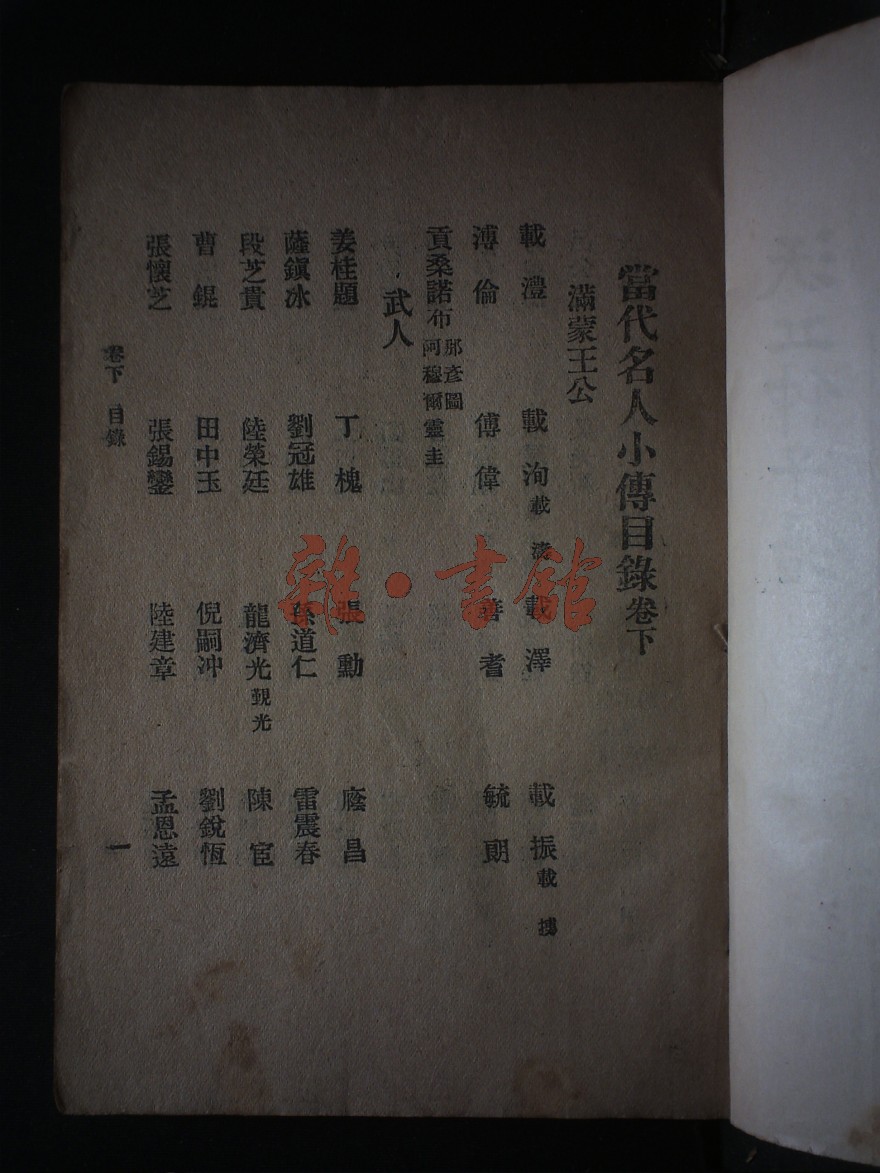 當代名人小傳目錄卷下
滿蒙王公
載灃 載洵 載濤 載澤 載振 載摶
溥倫 傅偉 善耆 毓朗
貢桑諾布 那彥圖 阿穆爾靈圭
武人
姜桂題 丁槐 張勳 廕昌
薩鎭冰 劉冠雄 孫道仁 雷震春
段芝貴 陸榮廷 龍濟光 覲光 陳宧
曹錕 田中玉 倪嗣沖 劉銳恆
張懷芝 張錫鑾 陸建章 孟恩遠
卷下 目錄 一
雜·書館